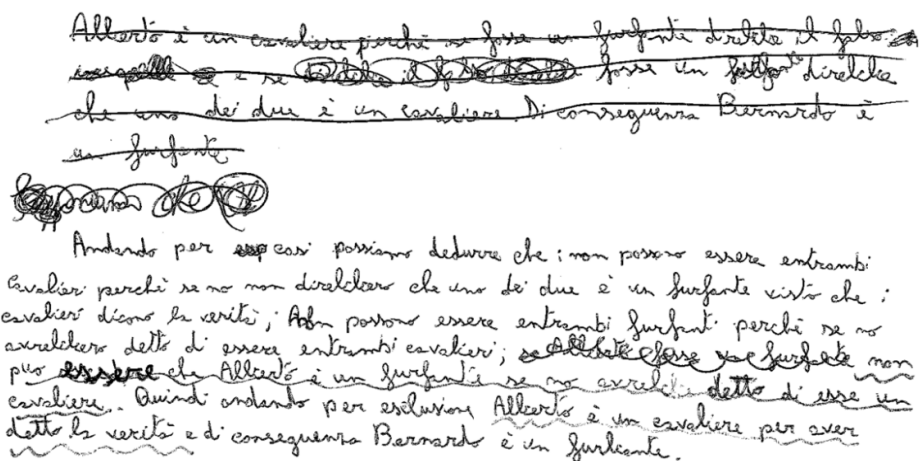 Alberto è un cavaliere perché se fosse un furfante direbbe il falso
e se fosse un furfante direbbe
che uno dei due è un cavaliere. Di conseguenza Bernardo è
un furfante
Supponiamo che
Andando per casi possiamo dedurre che: non possono essere entrambi
cavalieri perché se no non direbbero che uno dei due è un furfante visto che i
cavalieri dicono la verità; Non possono essere entrambi furfanti perché se no
avrebbero detto di essere entrambi cavalieri; se Alberto fosse furfante non
può essere che Alberto è un furfante se no avrebbe detto di esse un
cavaliere. Quindi andando per esclusione Alberto è un cavaliere per aver
detto la verità e di conseguenza Bernardo è un furfante.